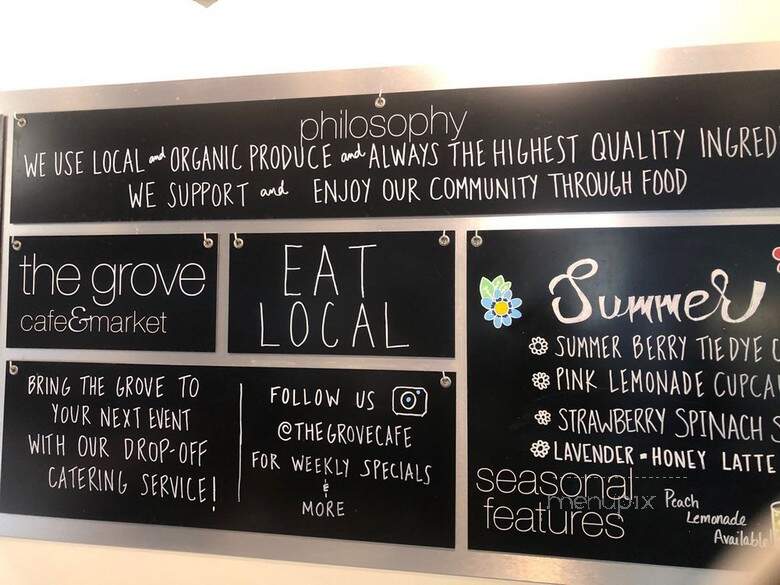 philosophy
WE USE LOCAL and ORGANIC PRODUCE and ALWAYS THE HIGHEST QUALITY INGRED
WE SUPPORT and ENJOY OUR COMMUNITY THROUGH FOOD
the grove
cafe&market
EAT
LOCAL
BRING THE GROVE TO
YOUR NEXT EVENT
WITH OUR DROP-OFF
CATERING SERVICE!
FOLLOW US
@THEGROVECAFE
FOR WEEKLY SPECIALS
&
MORE
Summer
SUMMER BERRY TIEDYE C
PINK LEMONADE CUPCA
STRAWBERRY SPINACH S
LAVENDER-HONEY LATTE
seasonal
features
menupix
Peach
Lemonade
Available